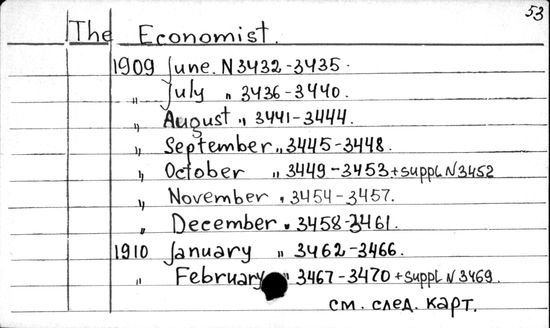 53
The Economist.
1909 June. N 3432-3435.
" July " 3436-3440.
" August " 3441-3444.
" September " 3445-3448.
" October " 3449-3453 + suppl. N 3452
" November " 3454-3457.
" December " 3458-3461.
1910 January " 3462-3466.
" February " 3467-3470 + suppl. N 3469.
см. след. карт.